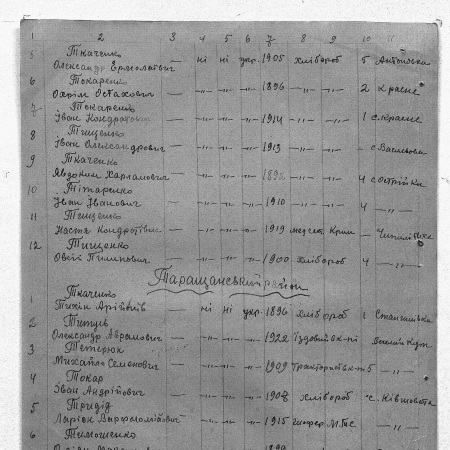 1 2 3 4 5 6 7 8 9 10 11
5 Ткаченко
Олександр Ермолаївич — ні ні укр. 1905 хлібороб 5 Антонівка
6 Токаренко
Охрім Остахович — -"- -"- -"- 1896 -"- -"- 2 Красне
7 Токаренко
Іван Кондратович — -"- -"- -"- 1914 -"- -"- 1 с. Красне
8 Тищенко
Іван Олександрович — -"- -"- -"- 1913 -"- с.
9 Ткаченко
Явдоким Харламович — -"- -"- -"- 1892 -"- -"- 4 с. Острійки
10 Тітаренко
Іван Іванович — -"- -"- -"- 1910 -"- 4 -"-
11 Тищенко
Настя Кондратівна — -"- -"- 1919 медсест.
12 Тищенко
Овсій Пилипович — -"- -"- -"- 1900 хлібороб 4 -"-
Таращанський район
1 Ткаченко
Тихін — ні ні укр. 1896 хлібороб 1 Станишівка
2
Олександр Аврамович — -"- -"- -"- 1922 їздовий
3 Тетерюк
Михайло Семенович — -"- -"- -"- 1909 5 -"-
4 Токар
Іван Андрійович — -"- -"- -"- 1908 хлібороб с. Ківшовата
5
Ларіон — -"- -"- -"- 1915 шофер М.Т.С. -"-
6 Тимошенко